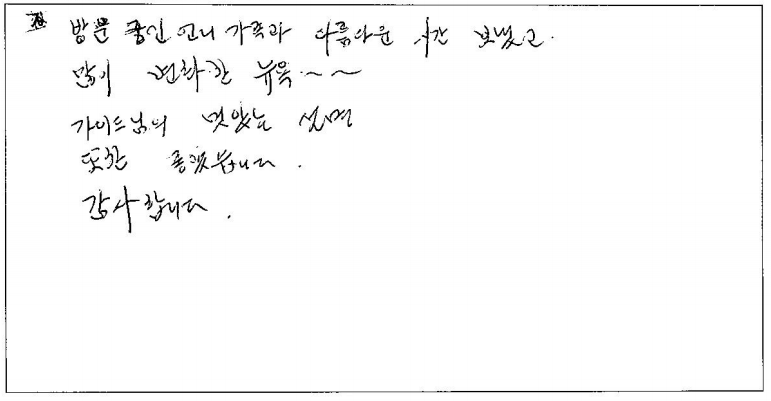 방문 중인 언니 가족과 아름다운 시간 보냈고.
많이 변화한 뉴욕~~
가이드님의 멋있는 설명
또한 좋았습니다.
감사합니다.